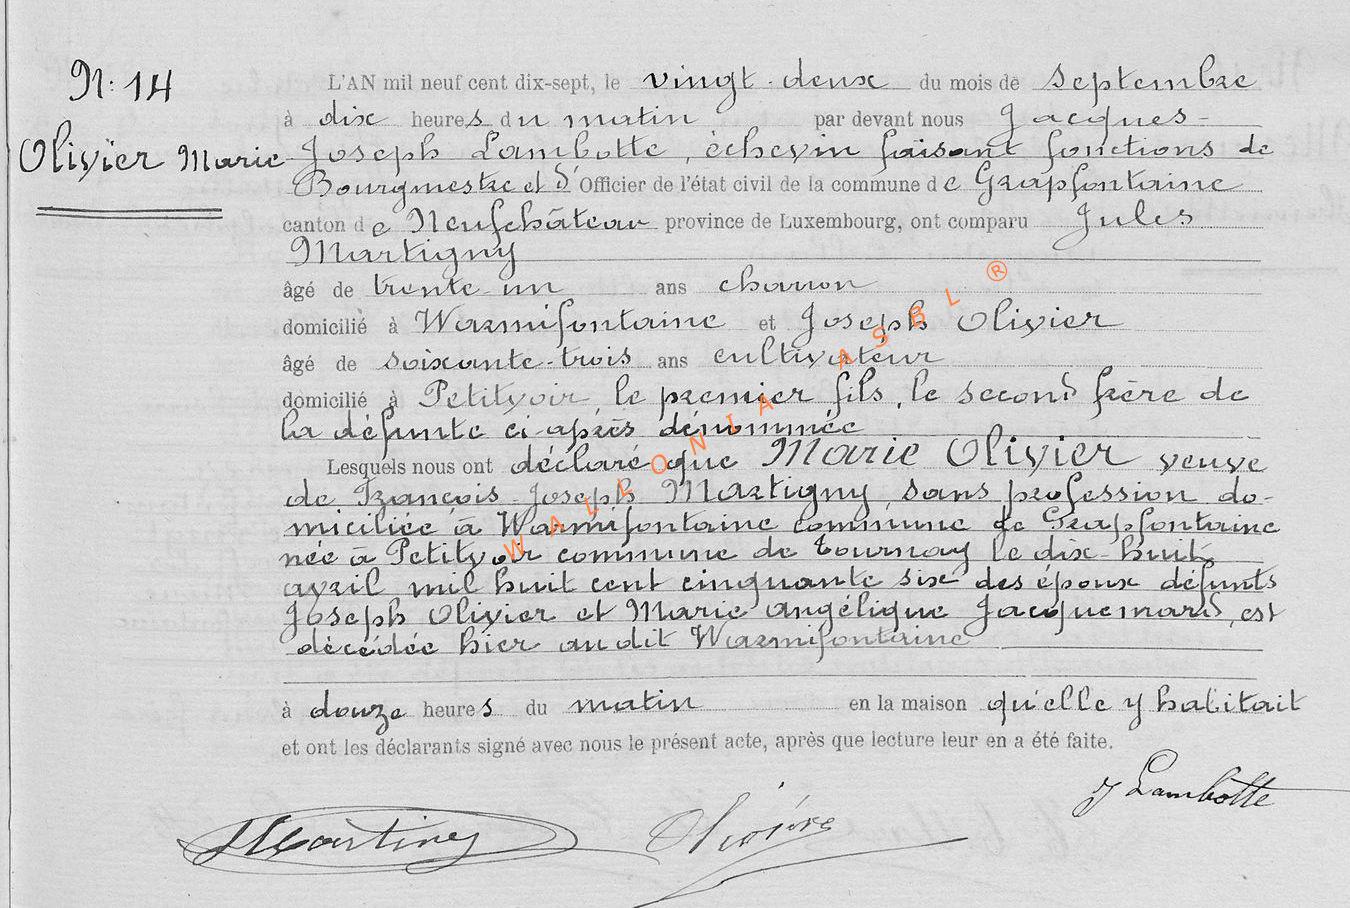 N: 14
L'AN mil neuf cent dix-sept, le vingt-deux du mois de septembre
à dix heures du matin par devant nous Jacques-
Olivier Marie
Joseph Lambotte, échevin faisant fonctions de
Bourgmestre et d'Officier de l'état civil de la commune de Grapfontaine
canton de Neufchâteau province de Luxembourg, ont comparu Jules
Martigny
âgé de trente-un ans charron
domicilié à Warmifontaine et Joseph Olivier
âgé de soixante-trois ans cultivateur
domicilié à Petitvoir, le premier fils, le second frère de
la défunte ci-après dénommée
Lesquels nous ont déclaré que Marie Olivier veuve
de François-Joseph Martigny sans profession do-
miciliée à Warmifontaine commune de Grapfontaine
née à Petitvoir commune de Tournay le dix-huit
avril mil huit cent cinquante six des époux défunts
Joseph Olivier et Marie Angélique Jacquemard, est
décédée hier au dit Warmifontaine
à douze heures du matin en la maison qu'elle y habitait
et ont les déclarants signé avec nous le présent acte, après que lecture leur en a été faite.
J Lambotte
JMartiny
Olivier
WALLONIA ASBL ®